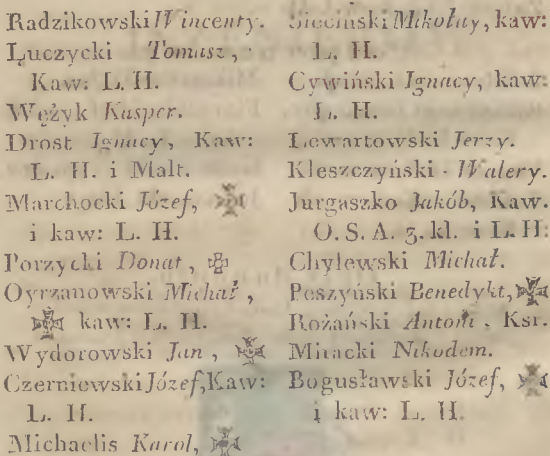 Radzikowski Wincenty.
Łuczycki Tomasz,
Kaw: L. H.
Wężyk Kasper.
Drost Ignacy, Kaw:
L. H. i Malt.
Marchocki Józef,
i kaw: L. H.
Porzycki Donat,
Oyrzanowski Michał,
kaw: L. H.
Wydorowski Jan,
Czerniewski Józef, Kaw:
L. H.
Michaelis Karol,
Mikołay, kaw:
L. H.
Cywiński Ignacy, kaw:
L. H.
Lewartowski Jerzy.
Kleszczyński Walery.
Jurgaszko Jakób, Kaw.
O. S. A. 3. kl. i L. H:
Chylewski Michał.
Peszyński Benedykt,
Rożański Antoni, Ksr.
Miracki Nikodem.
Bogusławski Józef,
i kaw: L. H.